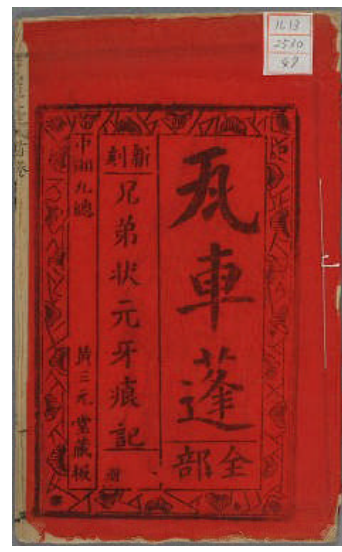 1613
2530
47
瓦車蓬
全部
新刻
兄弟状元牙痕記
中湘九總
黄三元堂藏板